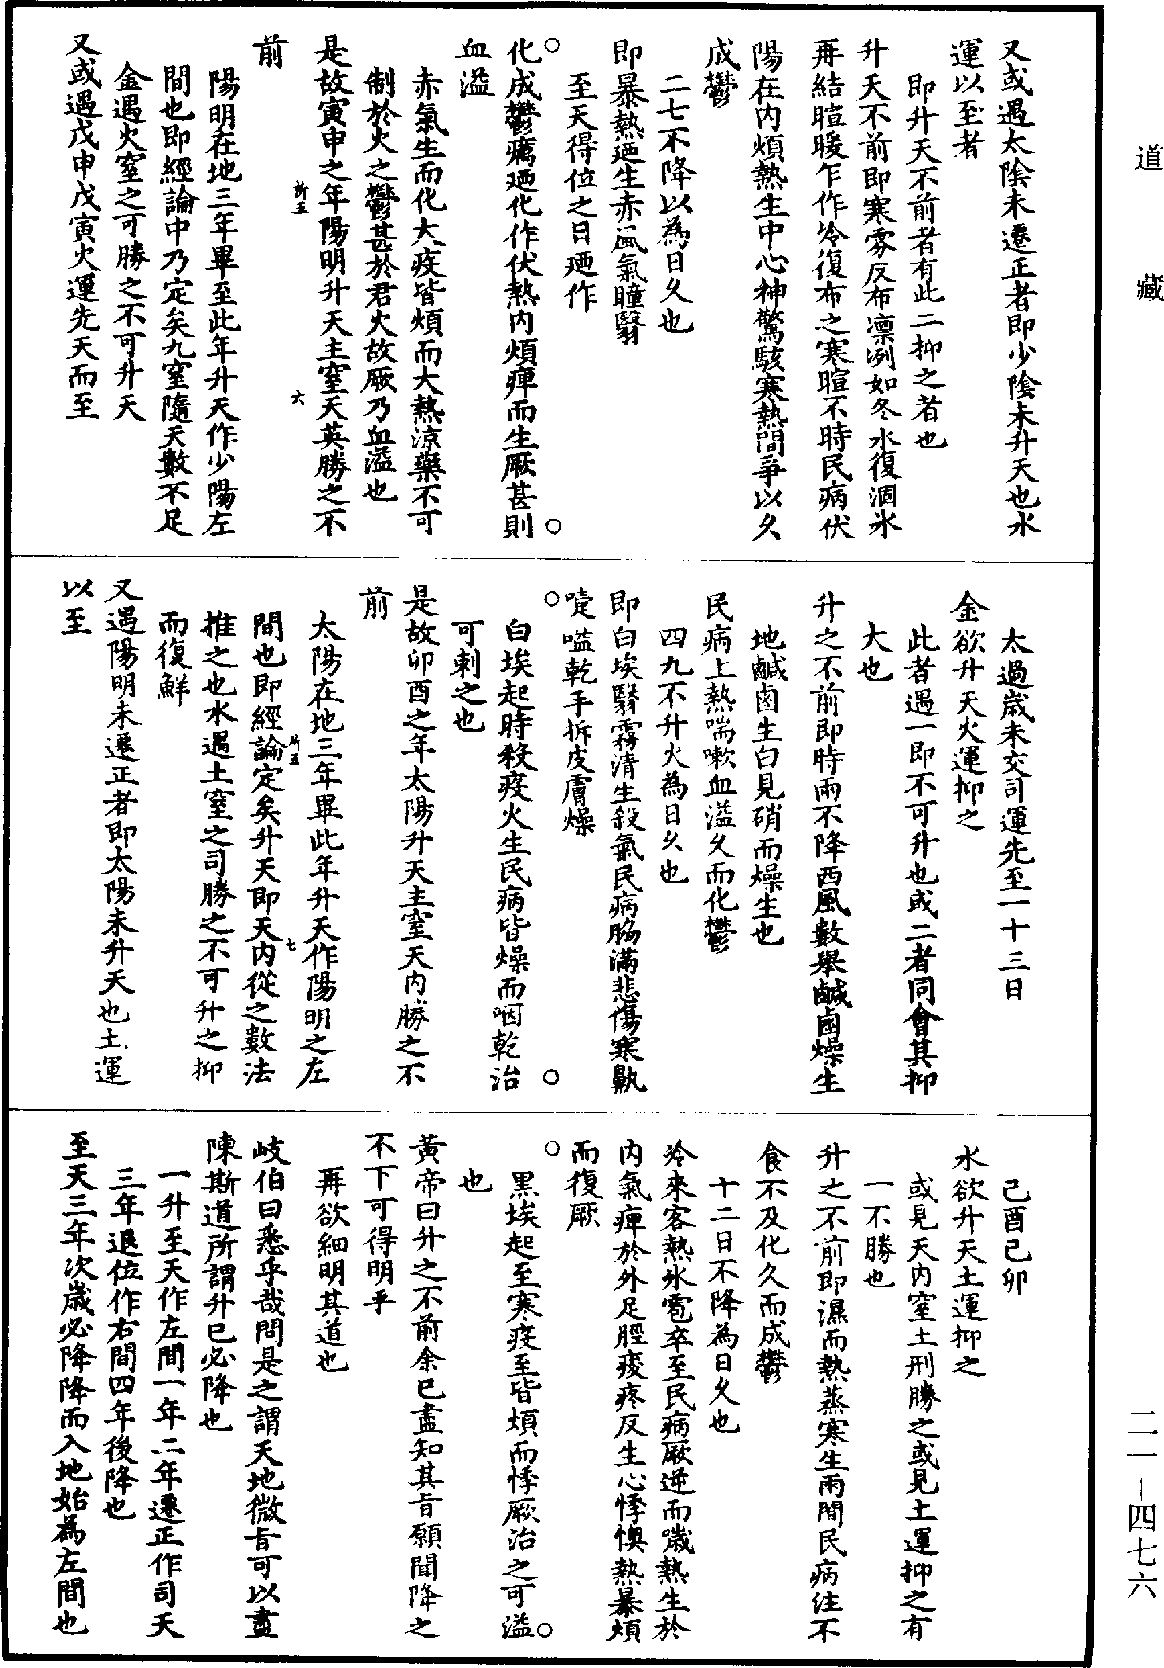 道藏
又或遇太陰未遷正者即少陰未升天也水
運以至者
即升天不前者有此二抑之者也
升天不前即寒雰反布凛冽如冬水復涸氷
再結暄暖乍作冷復布之寒暄不時民病伏
陽在内煩熱生中心神驚駭寒熱間爭以久
成鬱
二七不降以為日久也
即暴熱廼生赤風氣瞳翳
至天得位之日廼作
化成鬱癘廼化作伏熱内煩痺而生厥甚則
血溢
赤氣生而化大疫皆煩而大熱涼藥不可
制於火之鬱甚於君火故厥乃血溢也
是故寅申之年陽明升天主窒天英勝之不
前
陽明在地三年畢至此年升天作少陽左
間也即經論中乃定矣九窒隨天數不足
金遇火窒之可勝之不可升天
又或遇戊申戊寅火運先天而至
新五
六
太過歲未交司運先至一十三日
金欲升天火運抑之
此者遇一即不可升也或二者同會其抑
大也
升之不前即時雨不降西風數舉鹹鹵燥生
地鹹鹵生白見硝而燥生也
民病上熱喘嗽血溢久而化鬱
四九不升火為日久也
即白埃翳霧清生殺氣民病脇滿悲傷寒鼽
嚏嗌乾手拆皮膚燥
白埃起時殺疫火生民病皆燥而咽乾治
可刺之也
是故卯酉之年太陽升天主窒天内勝之不
前
太陽在地三年畢此年升天作陽明之左
間也即經論定矣升天即天内從之數法
推之也水遇土窒之司勝之不可升之抑
而復鮮
又遇陽明未遷正者即太陽未升天也土運
以至
七
己酉己卯
水欲升天土運抑之
或見天内窒土刑勝之或見土運抑之有
一不勝也
升之不前即濕而熱蒸寒生兩間民病注下
食不及化久而成鬱
十二日不降為日久也
冷來客熱氷雹卒至民病厥逆而噦熱生於
内氣痺於外足脛痠疼反生心悸懊熱暴煩
而復厥
黑埃起至寒疫至皆煩而悸厥治之可溢
也
黃帝曰升之不前余已盡知其旨願聞降之
不下可得明乎
再欲細明其道也
岐伯曰悉乎哉問是之謂天地微旨可以盡
陳斯道所謂升已必降也
一升至天作左間一年二年遷正作司天
三年退位作右間四年後降也
至天三年次歲必降降而入地始為左間也
二一—四七六